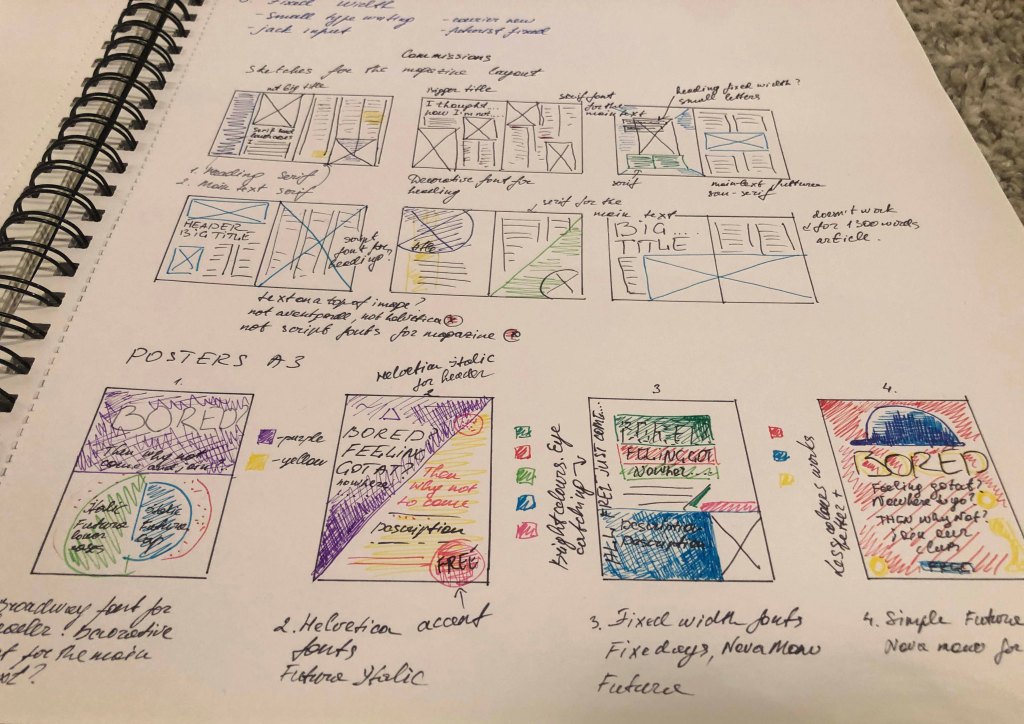 Fixed width
-small type writing
-courier new
-jack input
-futurist fixed
Commissions
Sketches for the magazine layout
not big title
bigger title
I thought
now I'm not...
serif font
for the
main text
heading fixed width?
small letters
serif and
1. Heading serif
2. Main text serif
Decorative font for
heading
serif
main text
san-serif
HEADER
BIG TITLE
script
font for
heading?
title
serif for the
main text
BIG....
TITLE
doesn't work
for 1300 words
article.
text on a top of image?
not script fonts for magazine
POSTERS A3
1.
BORED
Then why not
come and
Italic
Futura
lower
cases
Italic
Futura
cap
-purple
-yellow
Helvetica Italic
for header
2
BORED
FEELING
GOT AT?
nowhere
Then
why not
to come
Description
FREE
3
Bright colours. Eye
catch up
BORED
FEELING GOT
Nowher...
FREE! JUST COME...
Description
Description
4.
Less colours works
better
BORED
Feeling got at?
Nowhere to go?
THEN why Not?
join our
club
FREE
Broadway font for
header. Decorative
for the main
2. Helvetica accent
fonts
Futura Italic
3. Fixed width fonts
Fixedsys, Nova Mono
Futura
4. Simple Futura
Nova mono for